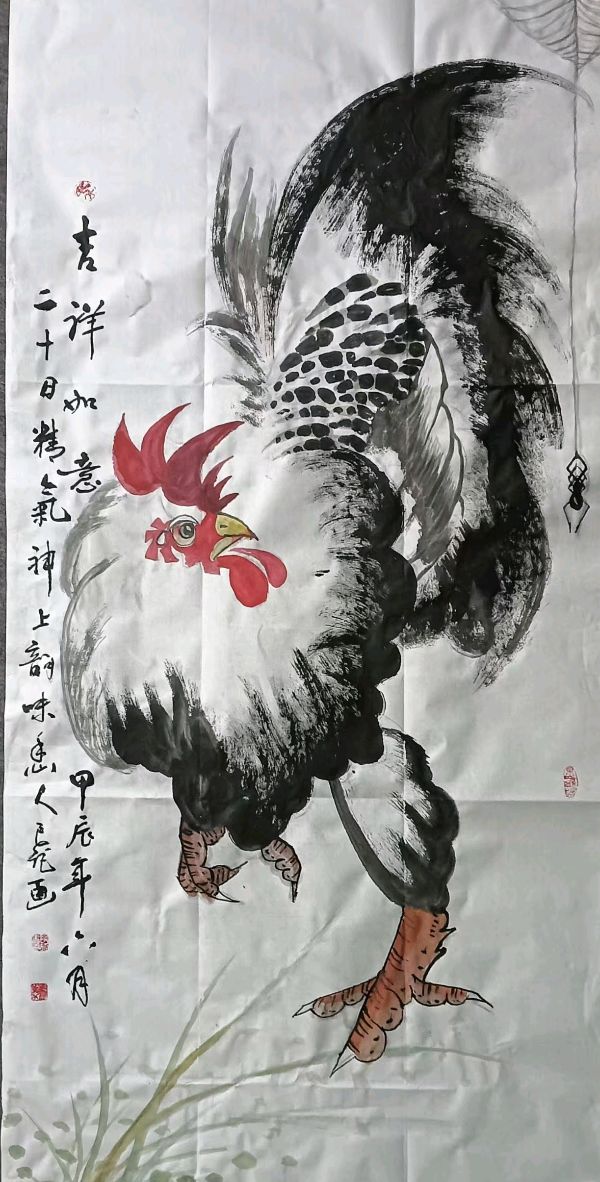 吉祥如意
甲辰年六月
二十日精氣神上韵味
人
画